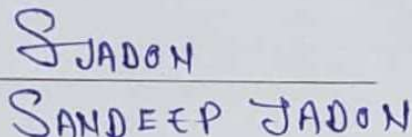 SJADON
SANDEEP JADON